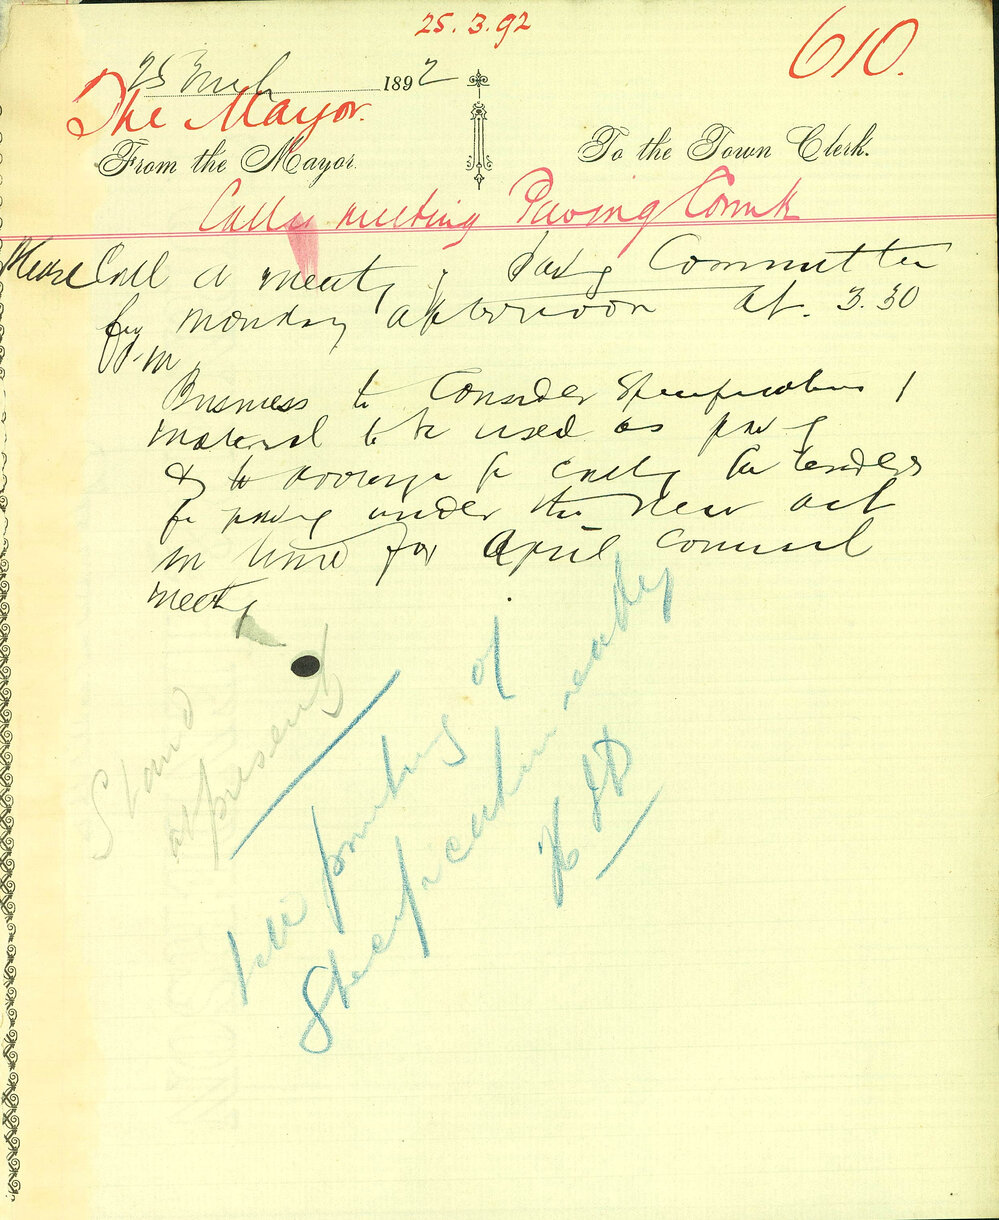 25.3.92
610.
25 March 1892
The Mayor.
From the Mayor.
To the Town Clerk.
Calls meeting Paving Comk
Please Call a meetg of Pavg Committee
for Monday afternoon at. 3.30
p.m
Business to Consider Specifications of
material to be used as pavg
& to arrange for callg for tenders
for pavg under the New act
in time for April Council
meetg
Stand
at present
printing of
Specification ready